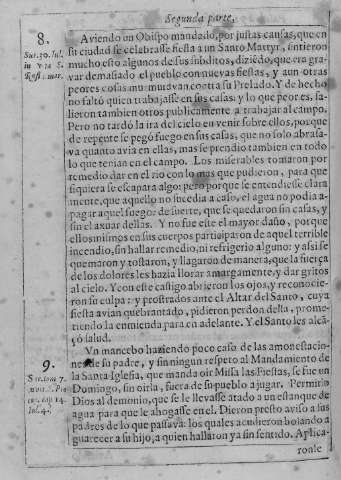 Segunda parte,
8.
Sur. 30. Jul.
in vita S.
Rosii. mar.
Aviendo un Obispo mandado, por justas causas, que en
su ciudad se celebrasse fiesta a un Santo Martyr, sintieron
mucho esto algunos de sus subditos, diziēdo, que era gra-
var demasiado el pueblo con nuevas fiestas, y aun otras
peores cosas murmuravan contra su Prelado. Y de hecho
no faltó quien trabajasse en sus casas: y lo que peor es, sa-
lieron tambien otros publicamente a trabajar al campo.
Pero no tardó la ira del cielo en venir sobre ellos, porque
de repente se pegó fuego en sus casas, que no solo abrasa-
va quanto avia en ellas, mas se prendio tambien en todo
lo que tenian en el campo. Los miserables tomaron por
remedio dar en el rio con lo mas que pudieron, para que
siquiera se escapara algo: pero porque se entendiesse clara
mente, que aquello no sucedia a caso, el agua no podia a-
pagar aquel fuego: de suerte, que se quedaron sin casas, y
sin el axuar dellas. Y no fue este el mayor daño, porque
ellos mismos en sus cuerpos participaron de aquel terrible
incendio, sin hallar remedio, ni refrigerio alguno: y assi se
quemaron y tostaron, y llagaron de manera, que la fuerça
de los dolores les hazia llorar amargamente, y dar gritos
al cielo. Y con este castigo abrieron los ojos, y reconocie-
ron su culpa: y prostrados ante el Altar del Santo, cuya
fiesta avian quebrantado, pidieron perdon desta, prome-
tiendo la enmienda para en adelante. Y el Santo les alcā-
çó salud.
9.
Un mancebo haziendo poco caso de las amonestacio-
nes de su padre, y sin ningun respeto al Mandamiento de
la Santa Iglesia, que manda oir Missa las Fiestas, se fue un
Domingo, sin oirla, fuera de su pueblo a jugar. Permitio
Dios al demonio, que se le llevasse atado a un estanque de
agua para que le ahogasse en el. Dieron presto aviso a sus
padres de lo que passava: los quales acudieron bolando a
guarecer a su hijo, a quien hallaron ya sin sentido. Aplica-
ronle